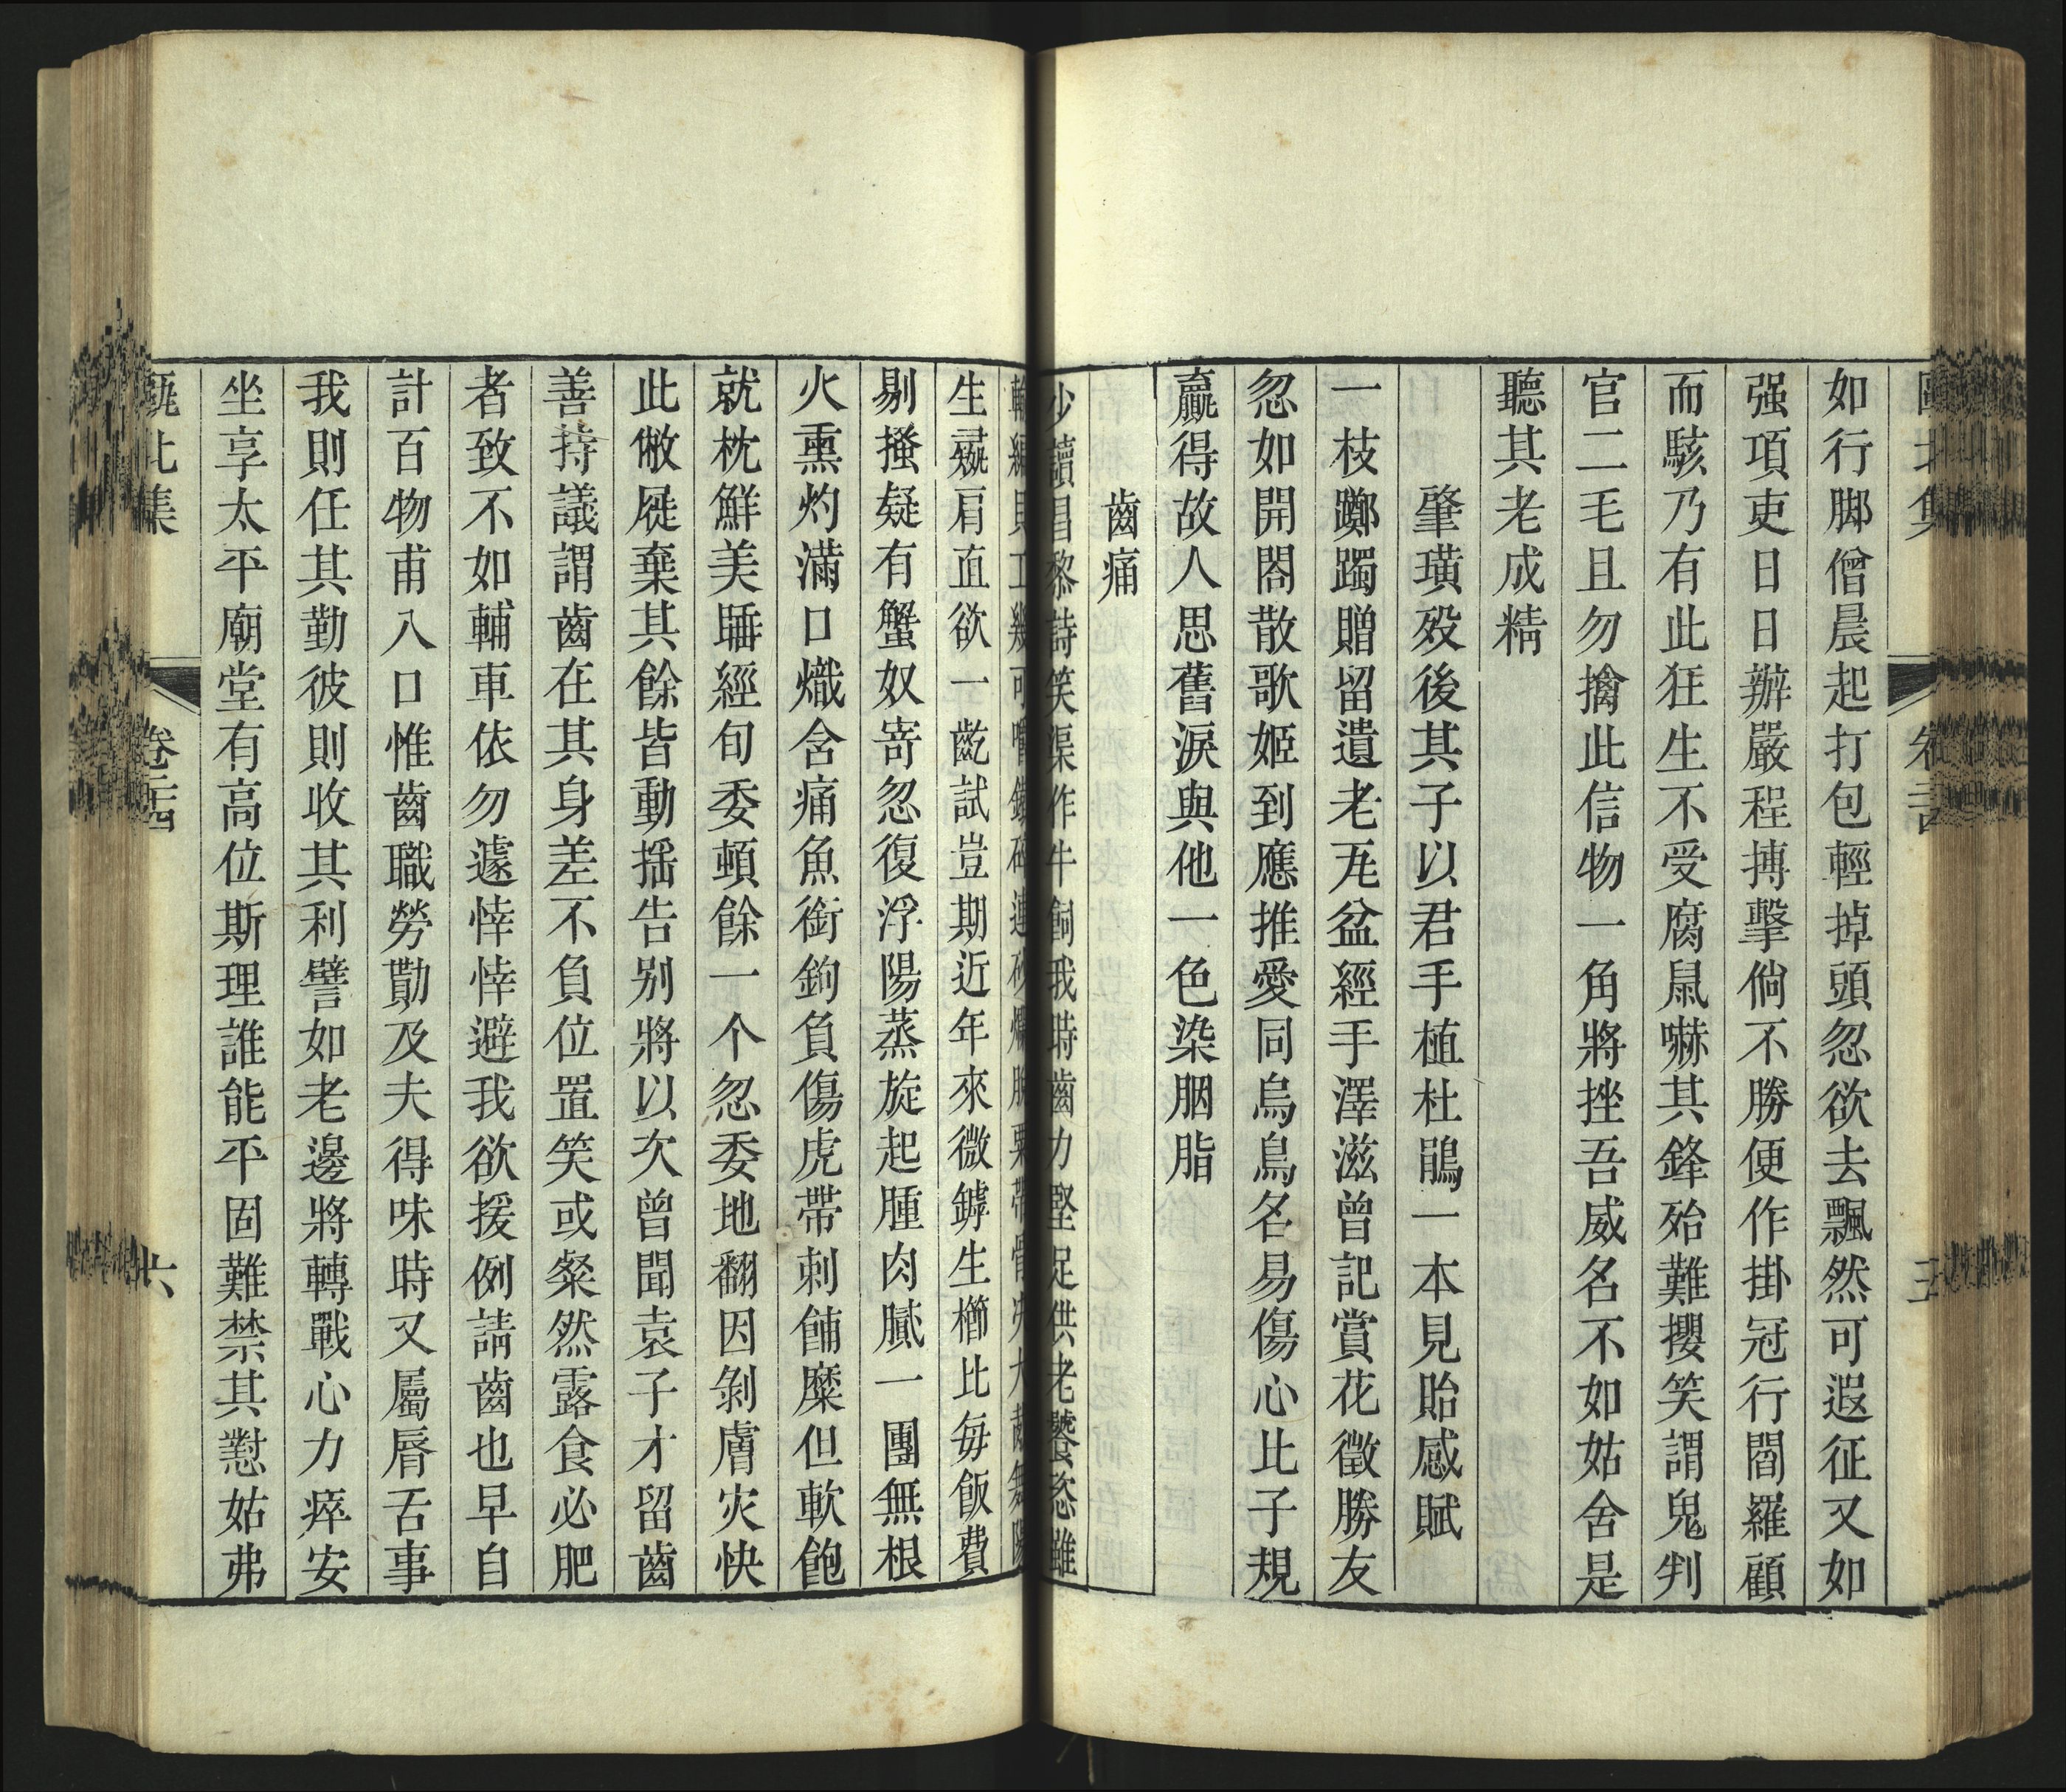 如行脚僧晨起打包輕掉頭忽欲去飄然可遐征又如
强項吏日日辦嚴程搏擊倘不勝便作掛冠行閻羅顧
而駭乃有此狂生不受腐鼠嚇其鋒殆難攖笑謂鬼判
官二毛且勿擒此信物一角將挫吾威名不如姑舍是
聽其老成精
肇璜殁後其子以君手植杜鵑一本見貽感賦
一枝躑躅贈留遺老瓦盆經手澤滋曾記賞花徵勝友
忽如開閤散歌姬到應推愛同烏鳥名易傷心比子規
贏得故人思舊淚與他一色染胭脂
齒痛
少讀昌黎詩笑渠作牛飼我時齒力堅足供老饕恣雖
生彘肩直欲一齕試豈期近年來微罅生櫛比每飯費
剔搔疑有蟹奴寄忽復浮陽蒸旋起腫肉膩一團無根
火熏灼滿口熾含痛魚銜鉤負傷虎帶刺餔糜但軟飽
就枕鮮美睡經旬委頓餘一个忽委地翻因剝膚灾快
此敝屣棄其餘皆動搖告别將以次曾聞袁子才留齒
善持議謂齒在其身差不負位置笑或粲然露食必肥
者致不如輔車依勿遽悻悻避我欲援例請齒也早自
計百物甫入口惟齒職勞勩及夫得味時又屬脣舌事
我則任其勤彼則收其利譬如老邊將轉戰心力瘁安
坐享太平廟堂有高位斯理誰能平固難禁其懟姑弗
甌北集 卷二十四 六